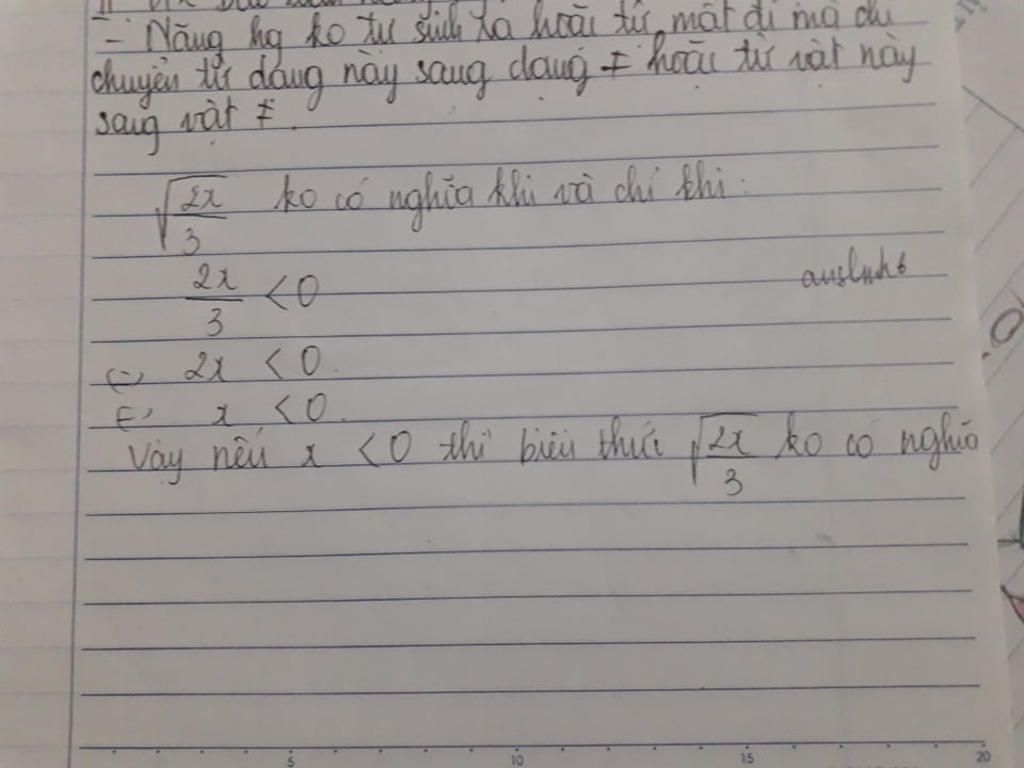 - Năng lg ko tự sinh ra hoặc tự mất đi mà chỉ
chuyển từ dạng này sang dạng ≠ hoặc từ vật này
sang vật ≠.
√2x/3 ko có nghĩa khi và chỉ khi:
2x/3 < 0
auslnk6
⇔ 2x < 0.
⇔ x < 0.
Vậy nếu x < 0 thì biểu thức √2x/3 ko có nghĩa
5 10 15 20